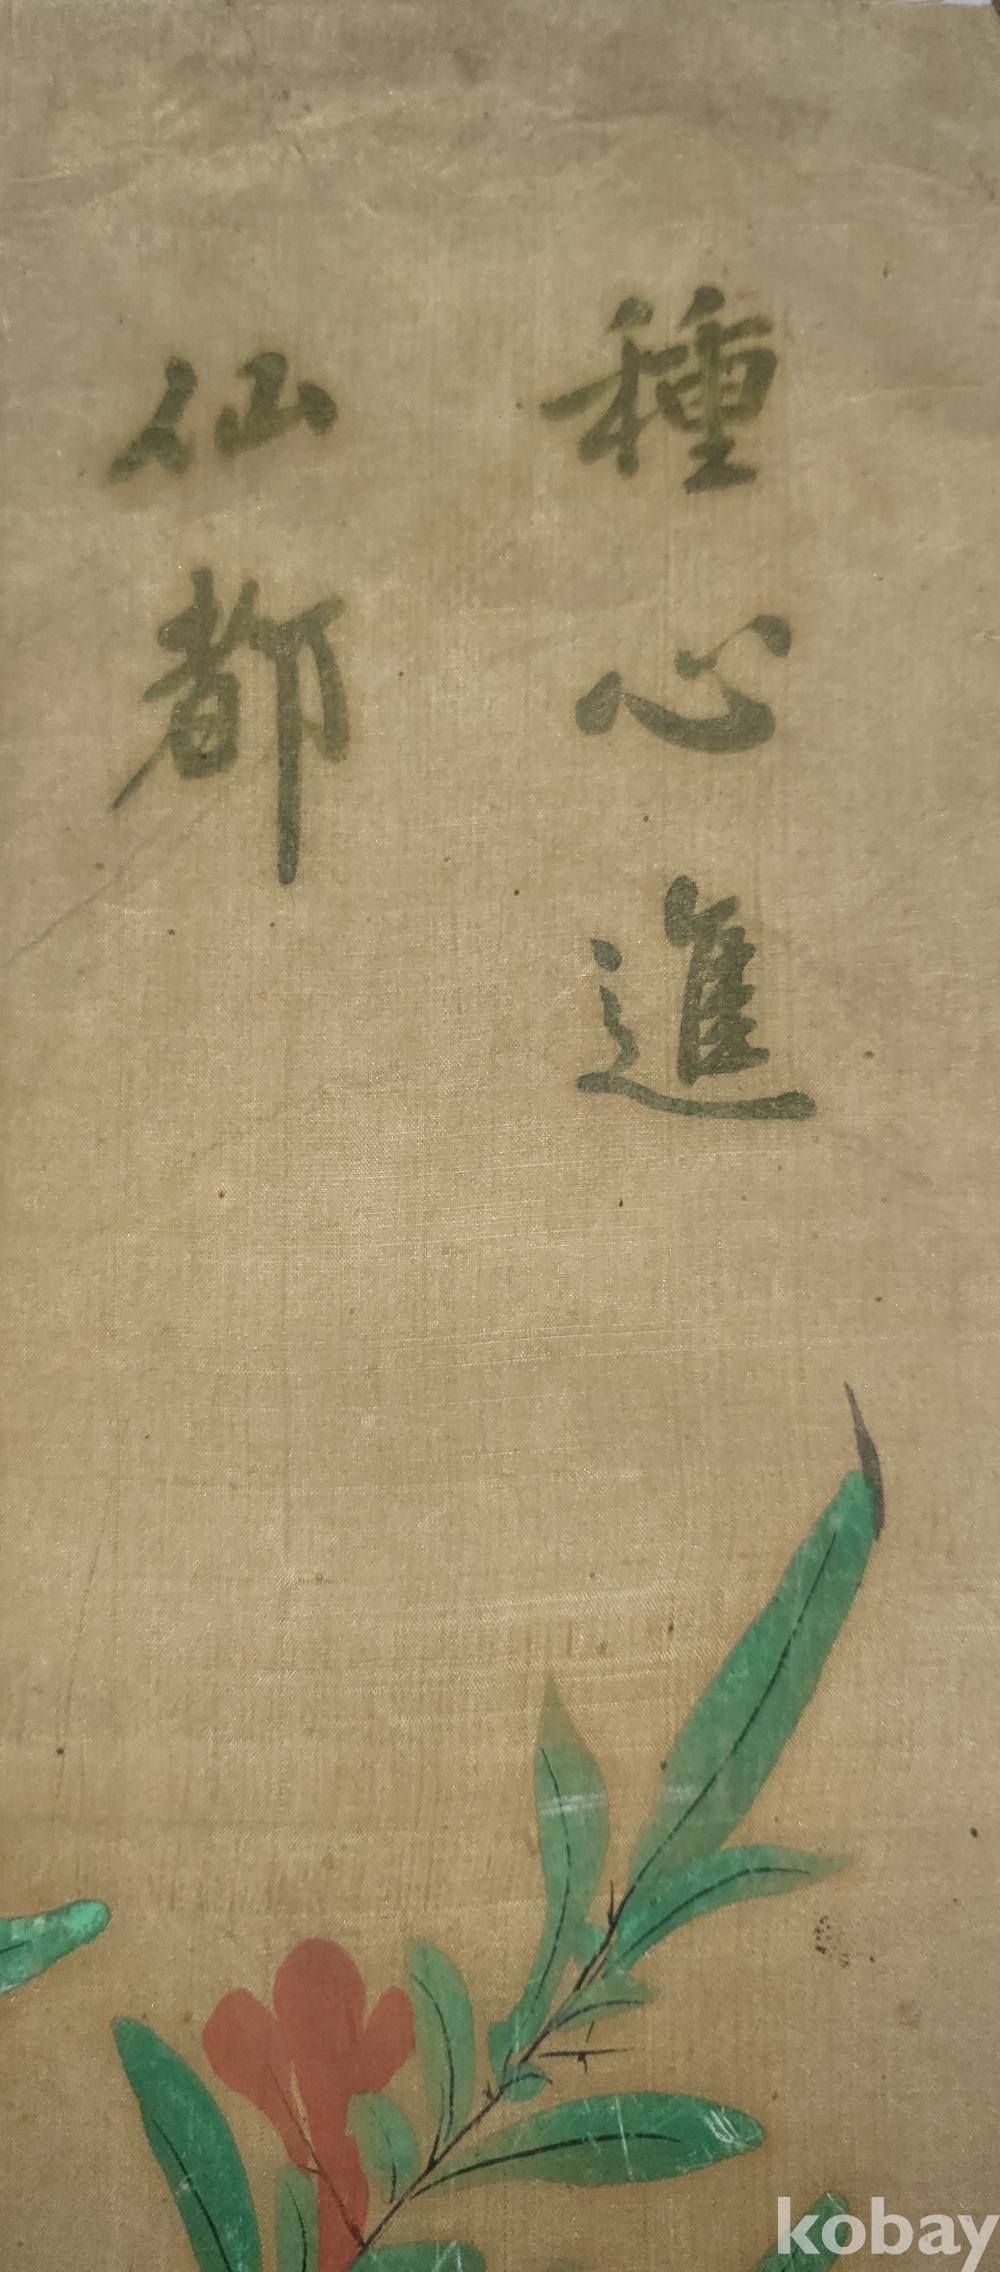 種心進
仙都
kobay